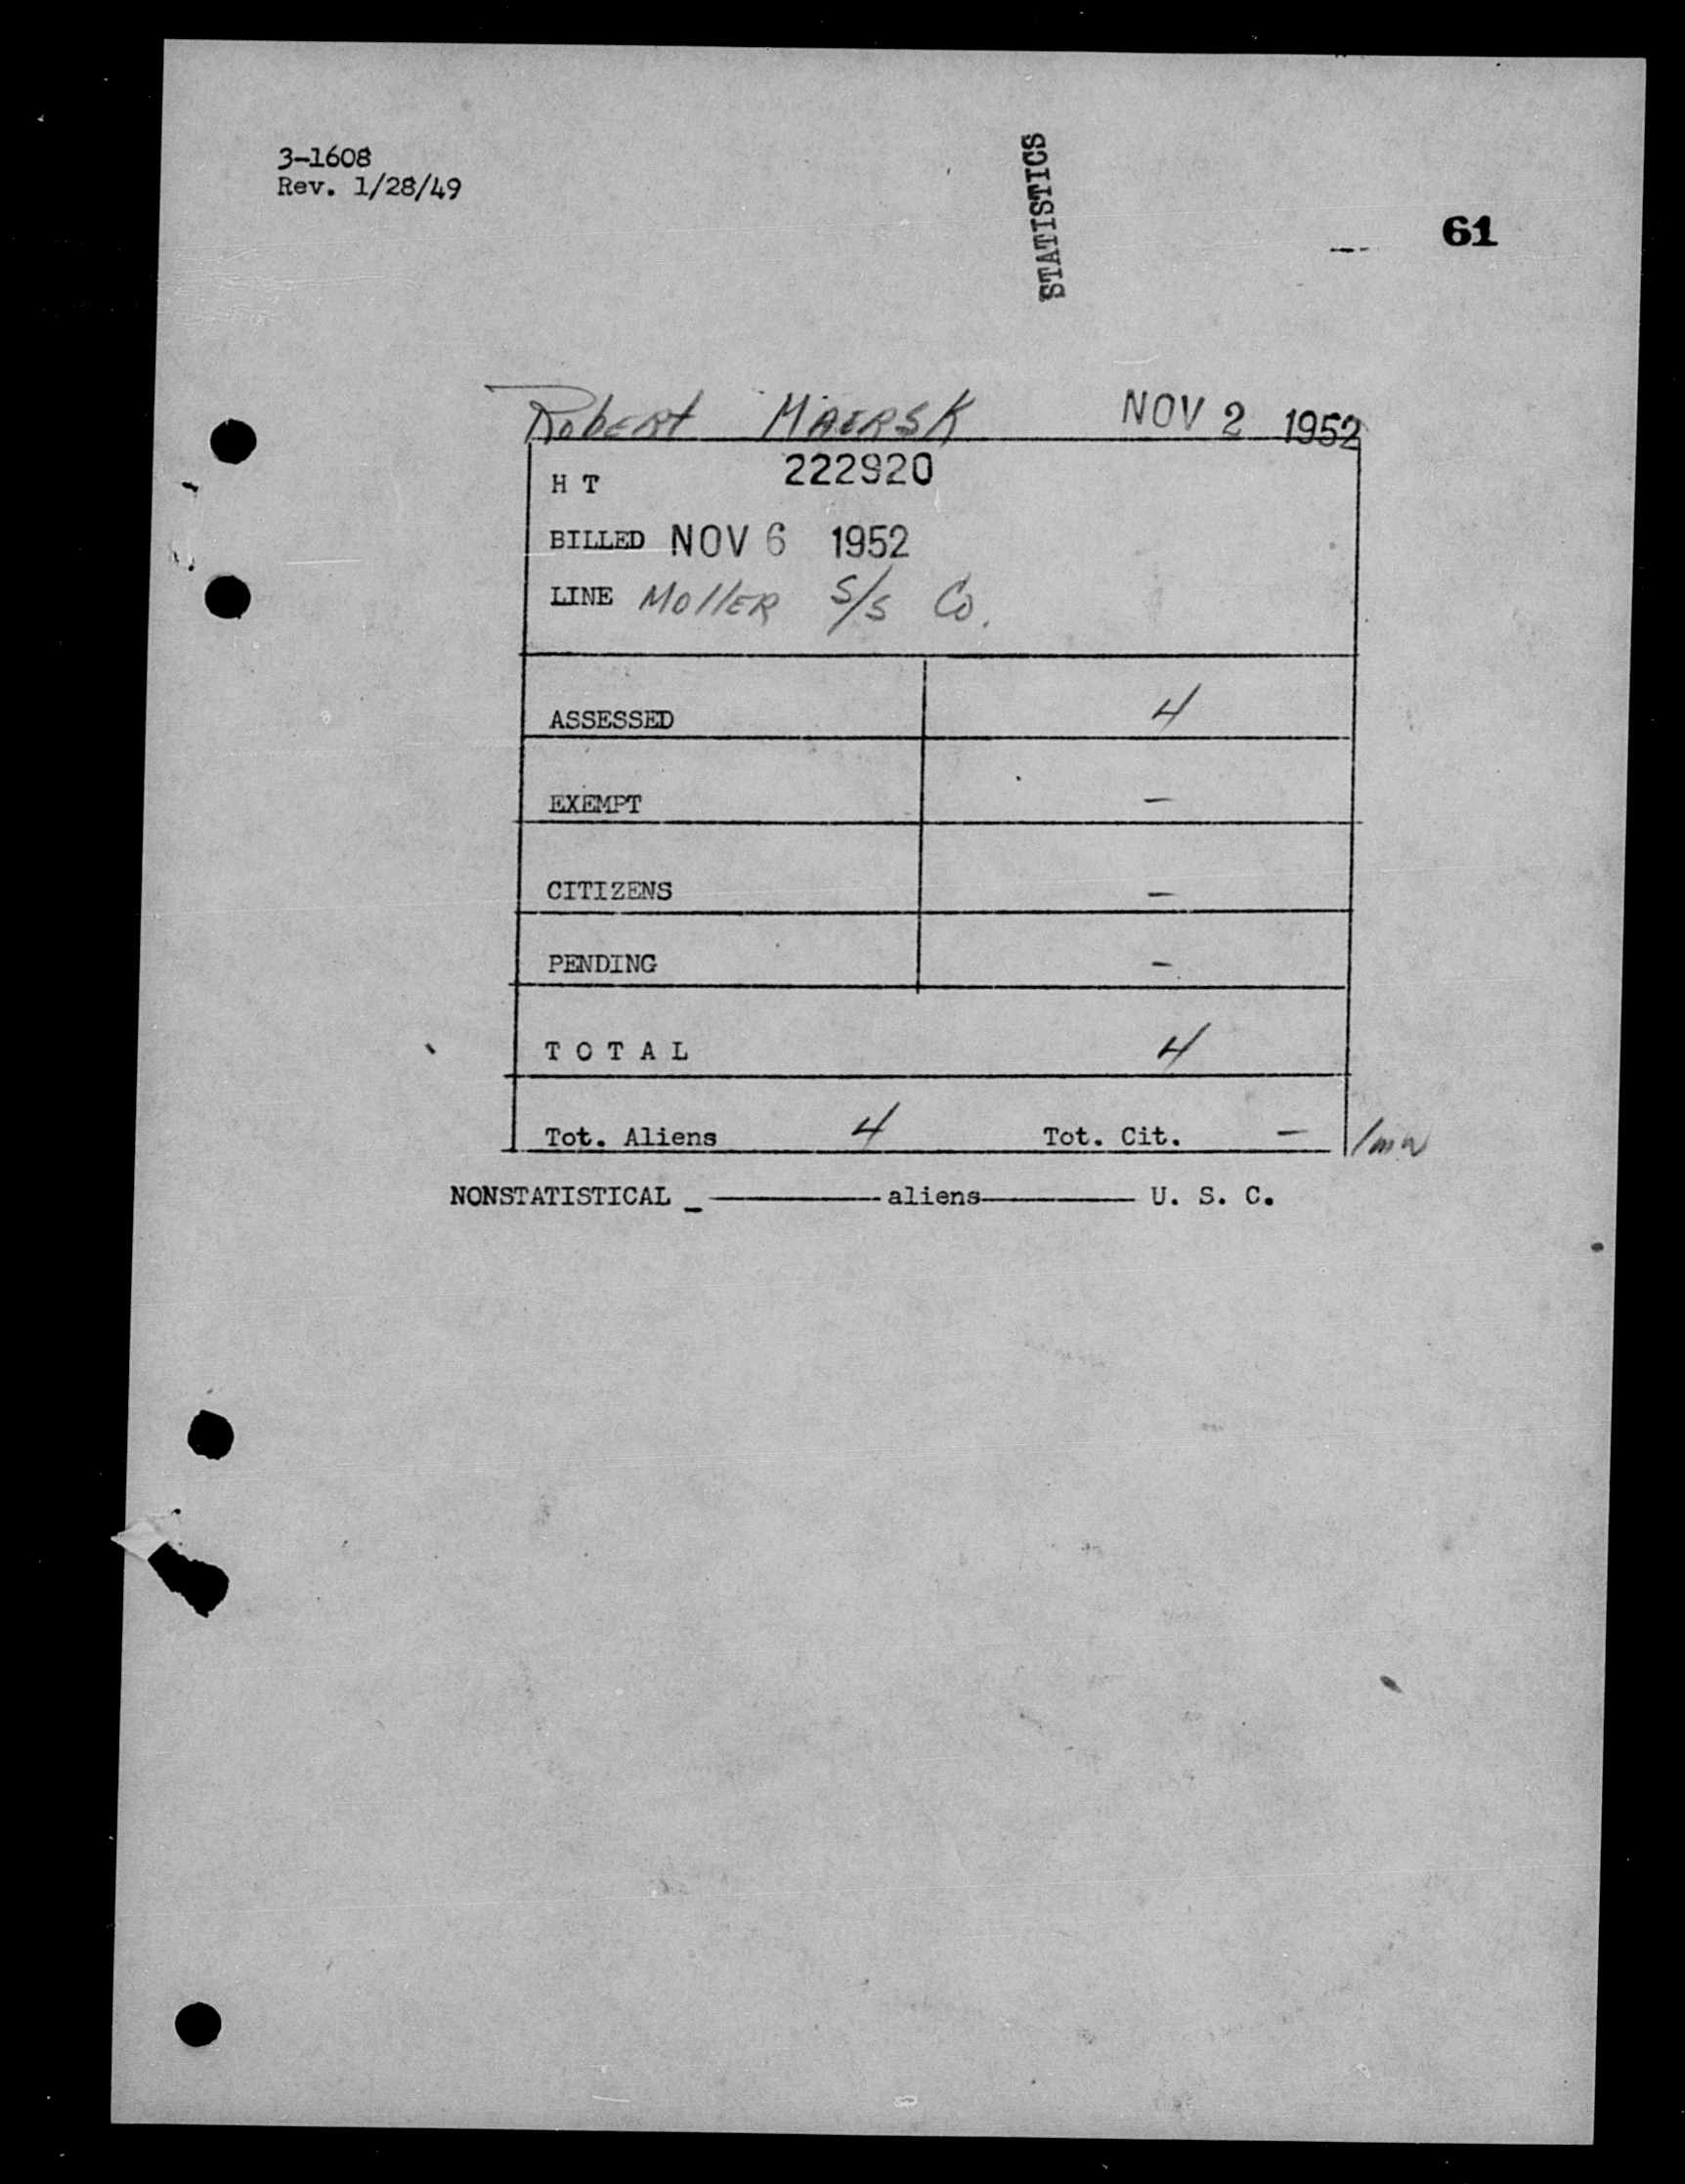 3-1608
Rev. 1/28/49
STATISTICS
61
Robert MAERSK NOV 2 1952
H T 222920
BILLED NOV 6 1952
LINE MOllER S/S Co.
ASSESSED 4
EXEMPT –
CITIZENS –
PENDING –
T O T A L 4
Tot. Aliens 4 Tot. Cit. –
NONSTATISTICAL _ ———— aliens ———— U. S. C.